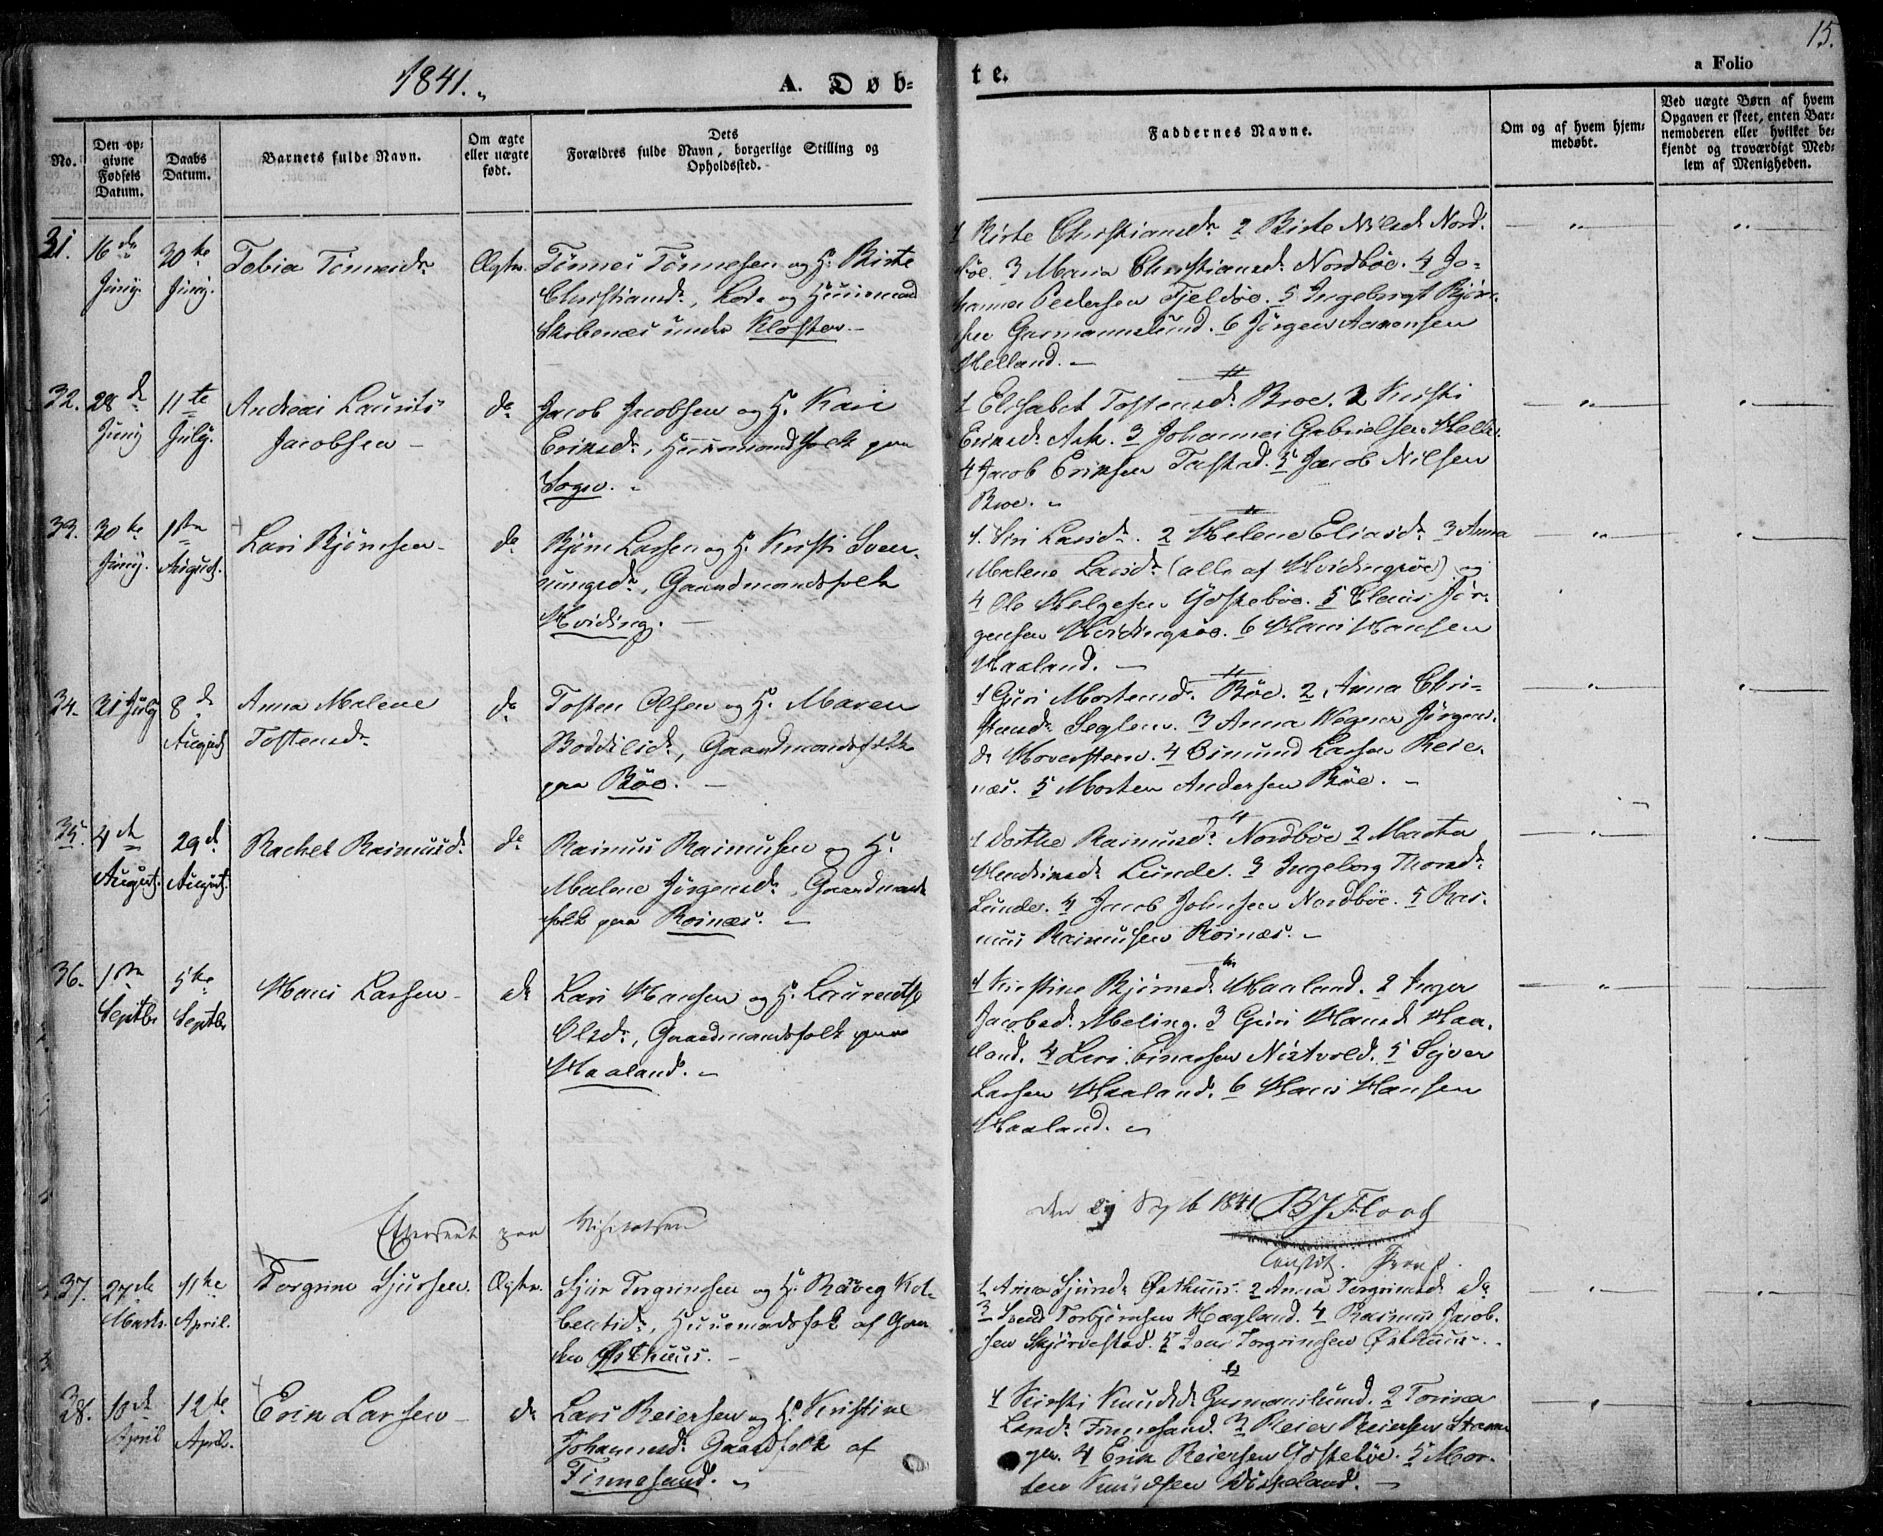 1841.
A. Døb-
te.
15.
a Folio
No.
Den op-
givne
Fødsels
Datum.
Daabs
Datum.
Barnets fulde Navn.
Om ægte
eller uægte
født.
Dets
Forældres fulde Navn, borgerlige Stilling og
Opholdssted.
Faddernes Navne.
Om og af hvem hjem-
medøbt.
Ved uægte Børn af hvem
Opgaven er skeet, enten Bar-
nemoderen eller hvilket be-
kjendt og troværdigt Med-
lem af Menigheden.
31.
16de
Juny.
30te
Juny.
Tobia Tönnesdr
Ægte.
Tönnes Tönnesen og H. Birte
Christiansdr, Lods og Huusmand
Skobenæs under Kloster.
1 Birte Christiansdr 2 Birte Nilsdr Nord-
böe. 3 Maria Christiansdr Nordböe. 4 Jo-
hannes Pedersen Fjeldöe. 5 Ingebregt Björn-
sen Garmannslund. 6 Jörgen Aanonsen
Helland.
32.
28d
Juny
11te
July.
Andreas Laurits
Jacobsen
do
Jacob Jacobsen og H. Kari
Eriksdr, Huusmandsfolk paa
Sogn.
1 Elisabet Tostensdr Broe. 2 Kirsti
Eriksdr Ask. 3 Johannes Gabrielsen Helle.
4 Jacob Eriksen Tastad. 5 Jacob Nilsen
Broe.
33.
30te
Juny.
1ste
August.
Lars Björnsen
do
Björn Larsen og H. Kirsti Sven-
nungsdr, Gaardmandsfolk
Hviding.
1. Siri Larsdr. 2 Helene Eliasdr 3 Anna
Malene Larsdr (alle af Hvidingsöe) og
4 Ole Helgesen Götteböe. 5 Claus Jör-
gensen Hvidingsöe. 6 Hans Hansen
Haaland.
34.
21 July
8d
August
Anna Malene
Tostensdr
do
Tosten Olsen og H. Maren
Bodilsdr, Gaardmandsfolk
paa Böe.
1 Guri Mortensdr Böe. 2 Anna Chri-
stensdr Seglem. 3 Anna Wegner Jörgens-
dr Hoversteen. 4 Osmund Larsen Reie-
næs. 5 Morten Andersen Böe.
35.
4de
August.
29d
August.
Rachel Rasmusdr
do
Rasmus Rasmusen og H.
Malene Jörgensdr, Gaardmands
folk paa Roinæs.
1 Dorthe Rasmusdr Nordböe 2 Marta
Hendriksdr Lunde. 3 Ingeborg Thorsdr
Lunde. 4 Jacob Johnsen Nordböe. 5 Ras-
mus Rasmusen Roinæs.
36.
1ste
Septbr
5te
Septbr
Hans Larsen
do
Lars Hansen og H. Laurentse
Olsdr, Gaardmandsfolk paa
Haaland.
1 Kirstine Björnsdr Haaland. 2 Inger
Jacobsdr Meling. 3 Guri Hansdr Haa-
land. 4 Lars Einarsen Nistvold. 5 Sejver
Larsen Haaland. 6 Hans Hansen
Haaland.
Efterseet paa Visitatsen
den Septb 1841 Flood
Constit. Provst.
37.
27de
Marts.
11te
April.
Torgrim Sjursen.
Ægte.
Sjur Torgrimsen og H. Raveg Kol-
bentsdr, Huusmandsfolk af Gaar
den Østhuus.
1. Anna Sjursdr Østhuus. 2 Anna Torgrimsdr do
3 Svend Torbjörnsen Hagland. 4 Rasmus Jacob-
sen Skjörvestad. 5 Torgrimsen Østhuus.
38.
10d
April
12te
April.
Erik Larsen
do
Lars Reiersen og H. Kristine
Johannesdr Gaardfolk af
Finnesand.
1 Kirsti Knudsdr Garmanslund. 2 Torina
Larsdr Finnesand. 3 Reier Reiersen
4 Erik Reiersen Götteböe. 5 Mor-
ten Knudsen